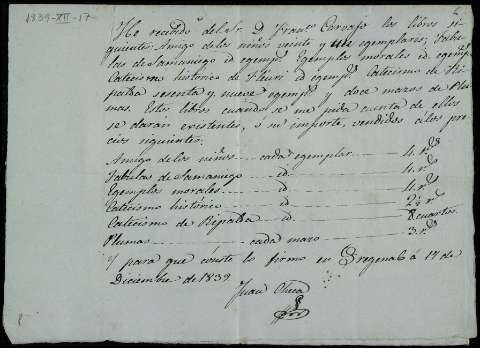 1839-XII-17
He recibido del Sr. D. Franco. Carvajo los libros si-
guientes. Amigo de los niños veinte y un egemplares; Fabu-
las de Samaniego id egemps. Egemplos morales id. egemps.
Catecismo historico de Fleuri id egemps. Catecismo de Ri-
palda sesenta y nueve egemps. y doce mazos de Plu-
mas. Estos libros cuando se me pida cuenta de ellos
se darán existentes, o su importe, vendidos a los pre-
cios siguientes.
Amigo de los niños — cada egemplar — 4. rs
Fabulas de Samaniego — id. — 4. rs
Egemplos morales — id — 4. rs
Catecismo histórico — id — 2½ rs
Catecismo de Ripalda — id. — 8 cuartos.
Plumas — cada mazo — 3. rs
Y para que conste lo firmo en Fregenal á 17 de
Diciembre de 1839
Juan